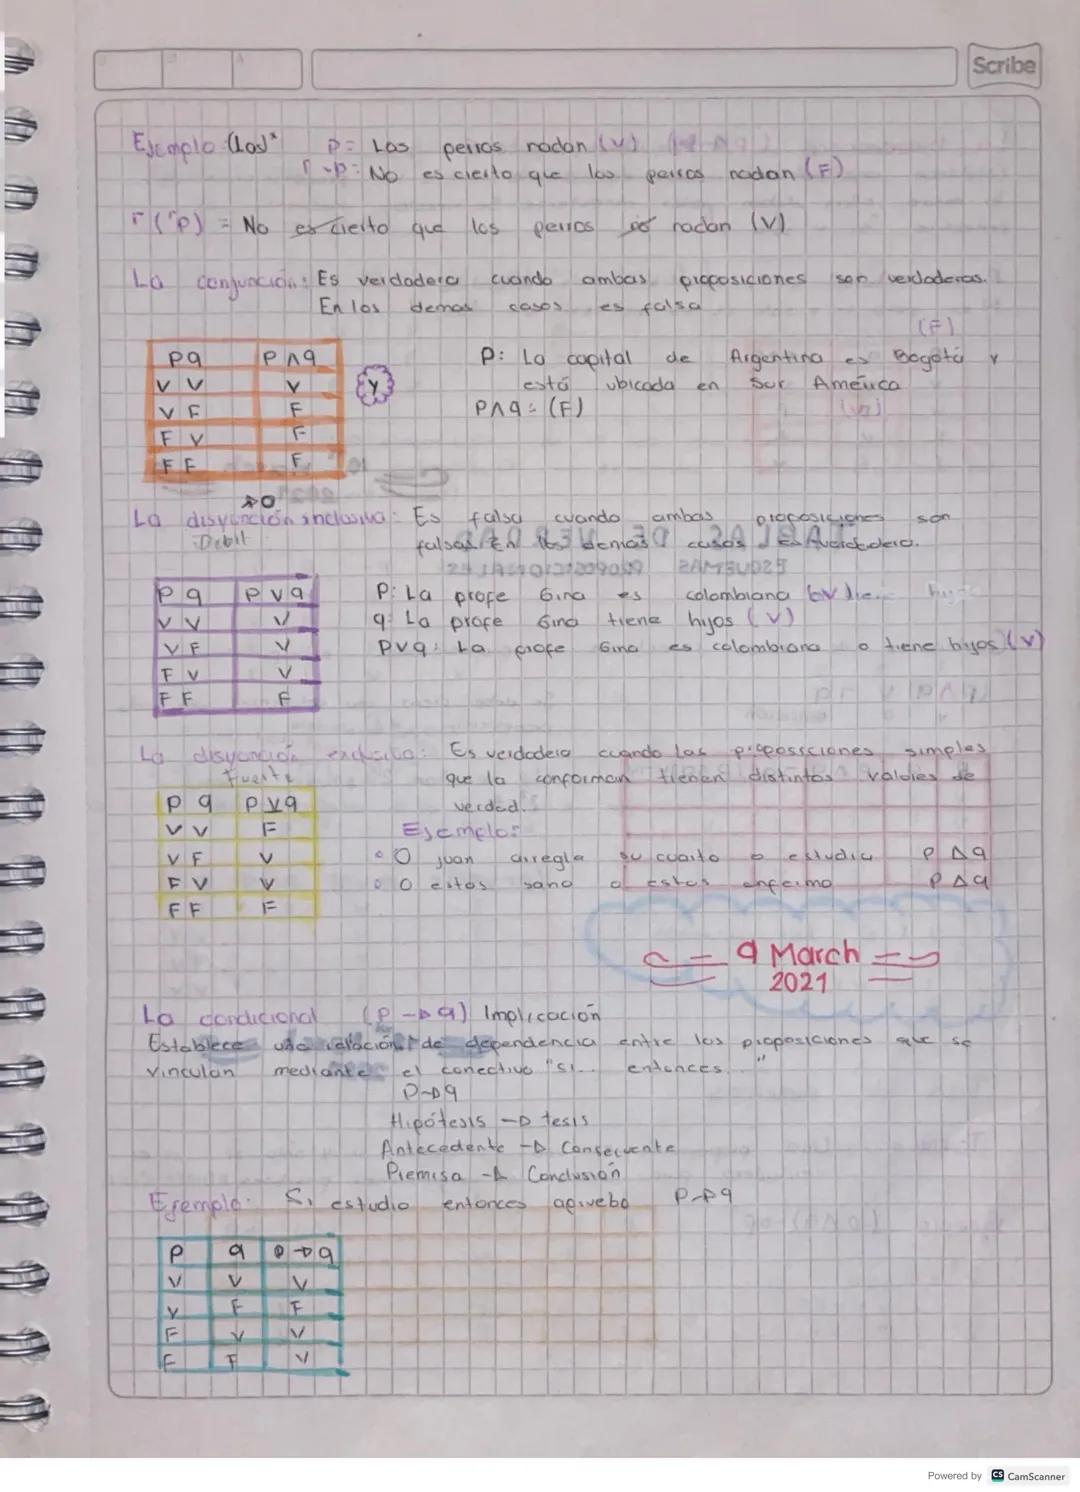 Scribe
Ejemplo (Los)" p= Los perros nadan (V)
¬p= No es cierto que los perros nadan (F)
¬(¬p) = No es cierto que los perros no nadan (V)
La conjunción: Es verdadera cuando ambas proposiciones son verdaderas.
En los demas casos es falsa
(F)
p q p ∧ q
V V V
V F F
F V F
F F F
Y
P: La capital de Argentina es Bogotá y
está ubicada en Sur América
P∧q: (F)
(V)
O
La disyunción inclusiva: Es falsa cuando ambas proposiciones son
Debil
falsas En los demas casos es verdadera.
P q p v q
V V V
V F V
F V V
F F F
P: La profe Gina es colombiana (V)
q: La profe Gina tiene hijos (V)
pvq: La profe Gina es colombiana o tiene hijos (V)
La disyunción exclusiva: Es verdadera cuando las proposiciones simples
Fuerte
que la conforman tienen distintos valores de
verdad.
P q p v q
V V F
V F V
F V V
F F F
Ejemplo:
O juan arregla su cuarto o estudia P Δ q
O estas sano o estas enfermo P Δ q
9 March
2021
La condicional (P → q) Implicación
Establece una relación de dependencia entre las proposiciones que se
vinculan mediante el conectivo "si... entonces..."
P→q
Hipótesis → tesis
Antecedente → Consecuente
Premisa → Conclusión
Ejemplo: Si estudio entonces apruebo P→q
P q p→q
V V V
V F F
F V V
F F V
Powered by CS CamScanner